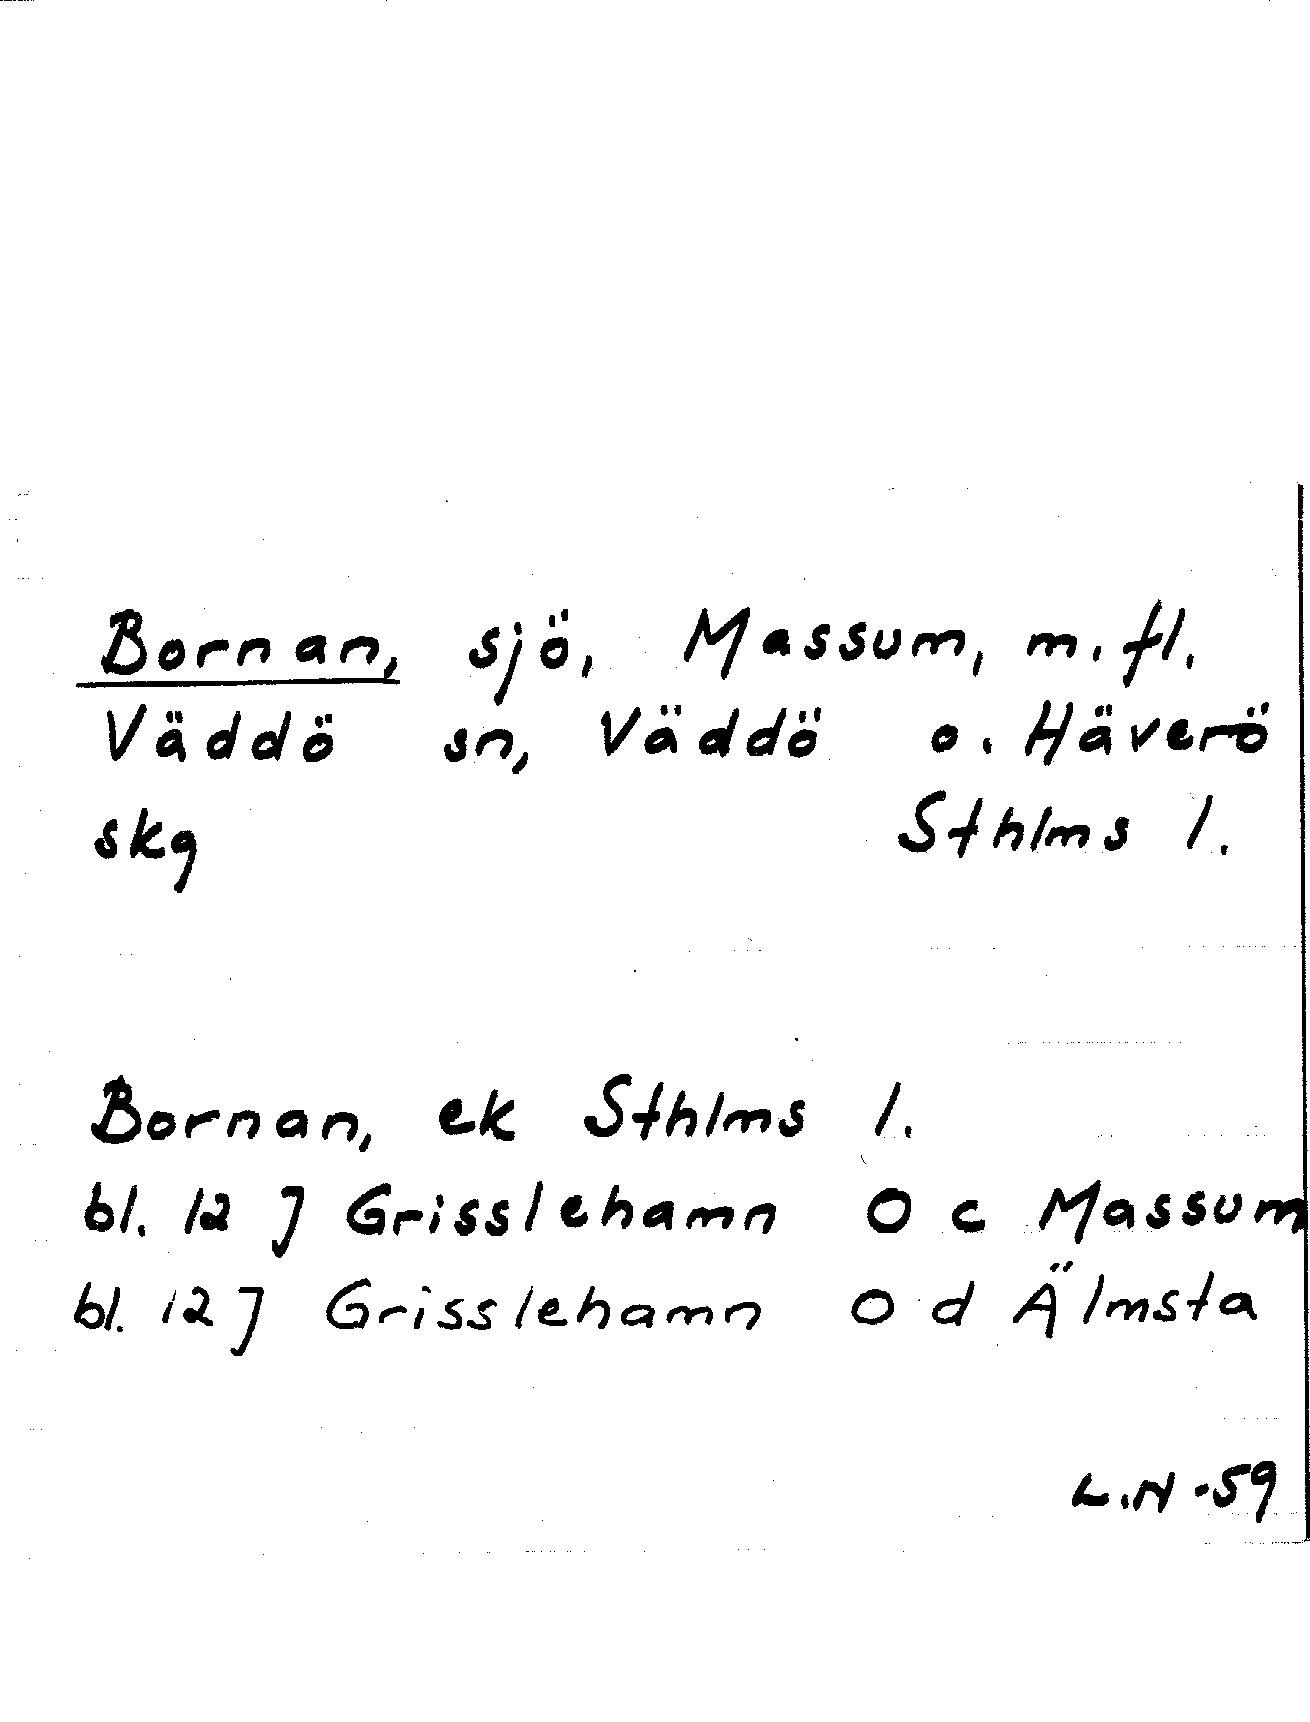 Bornan, sjö, Massum, m. fl.
Väddö sn, Väddö o. Häverö
skg Sthlms l.
Bornan, ek Sthlms l.
bl. 12 J Grisslehamn O c Massum
bl. 12 J Grisslehamn O d Älmsta
L.N -59